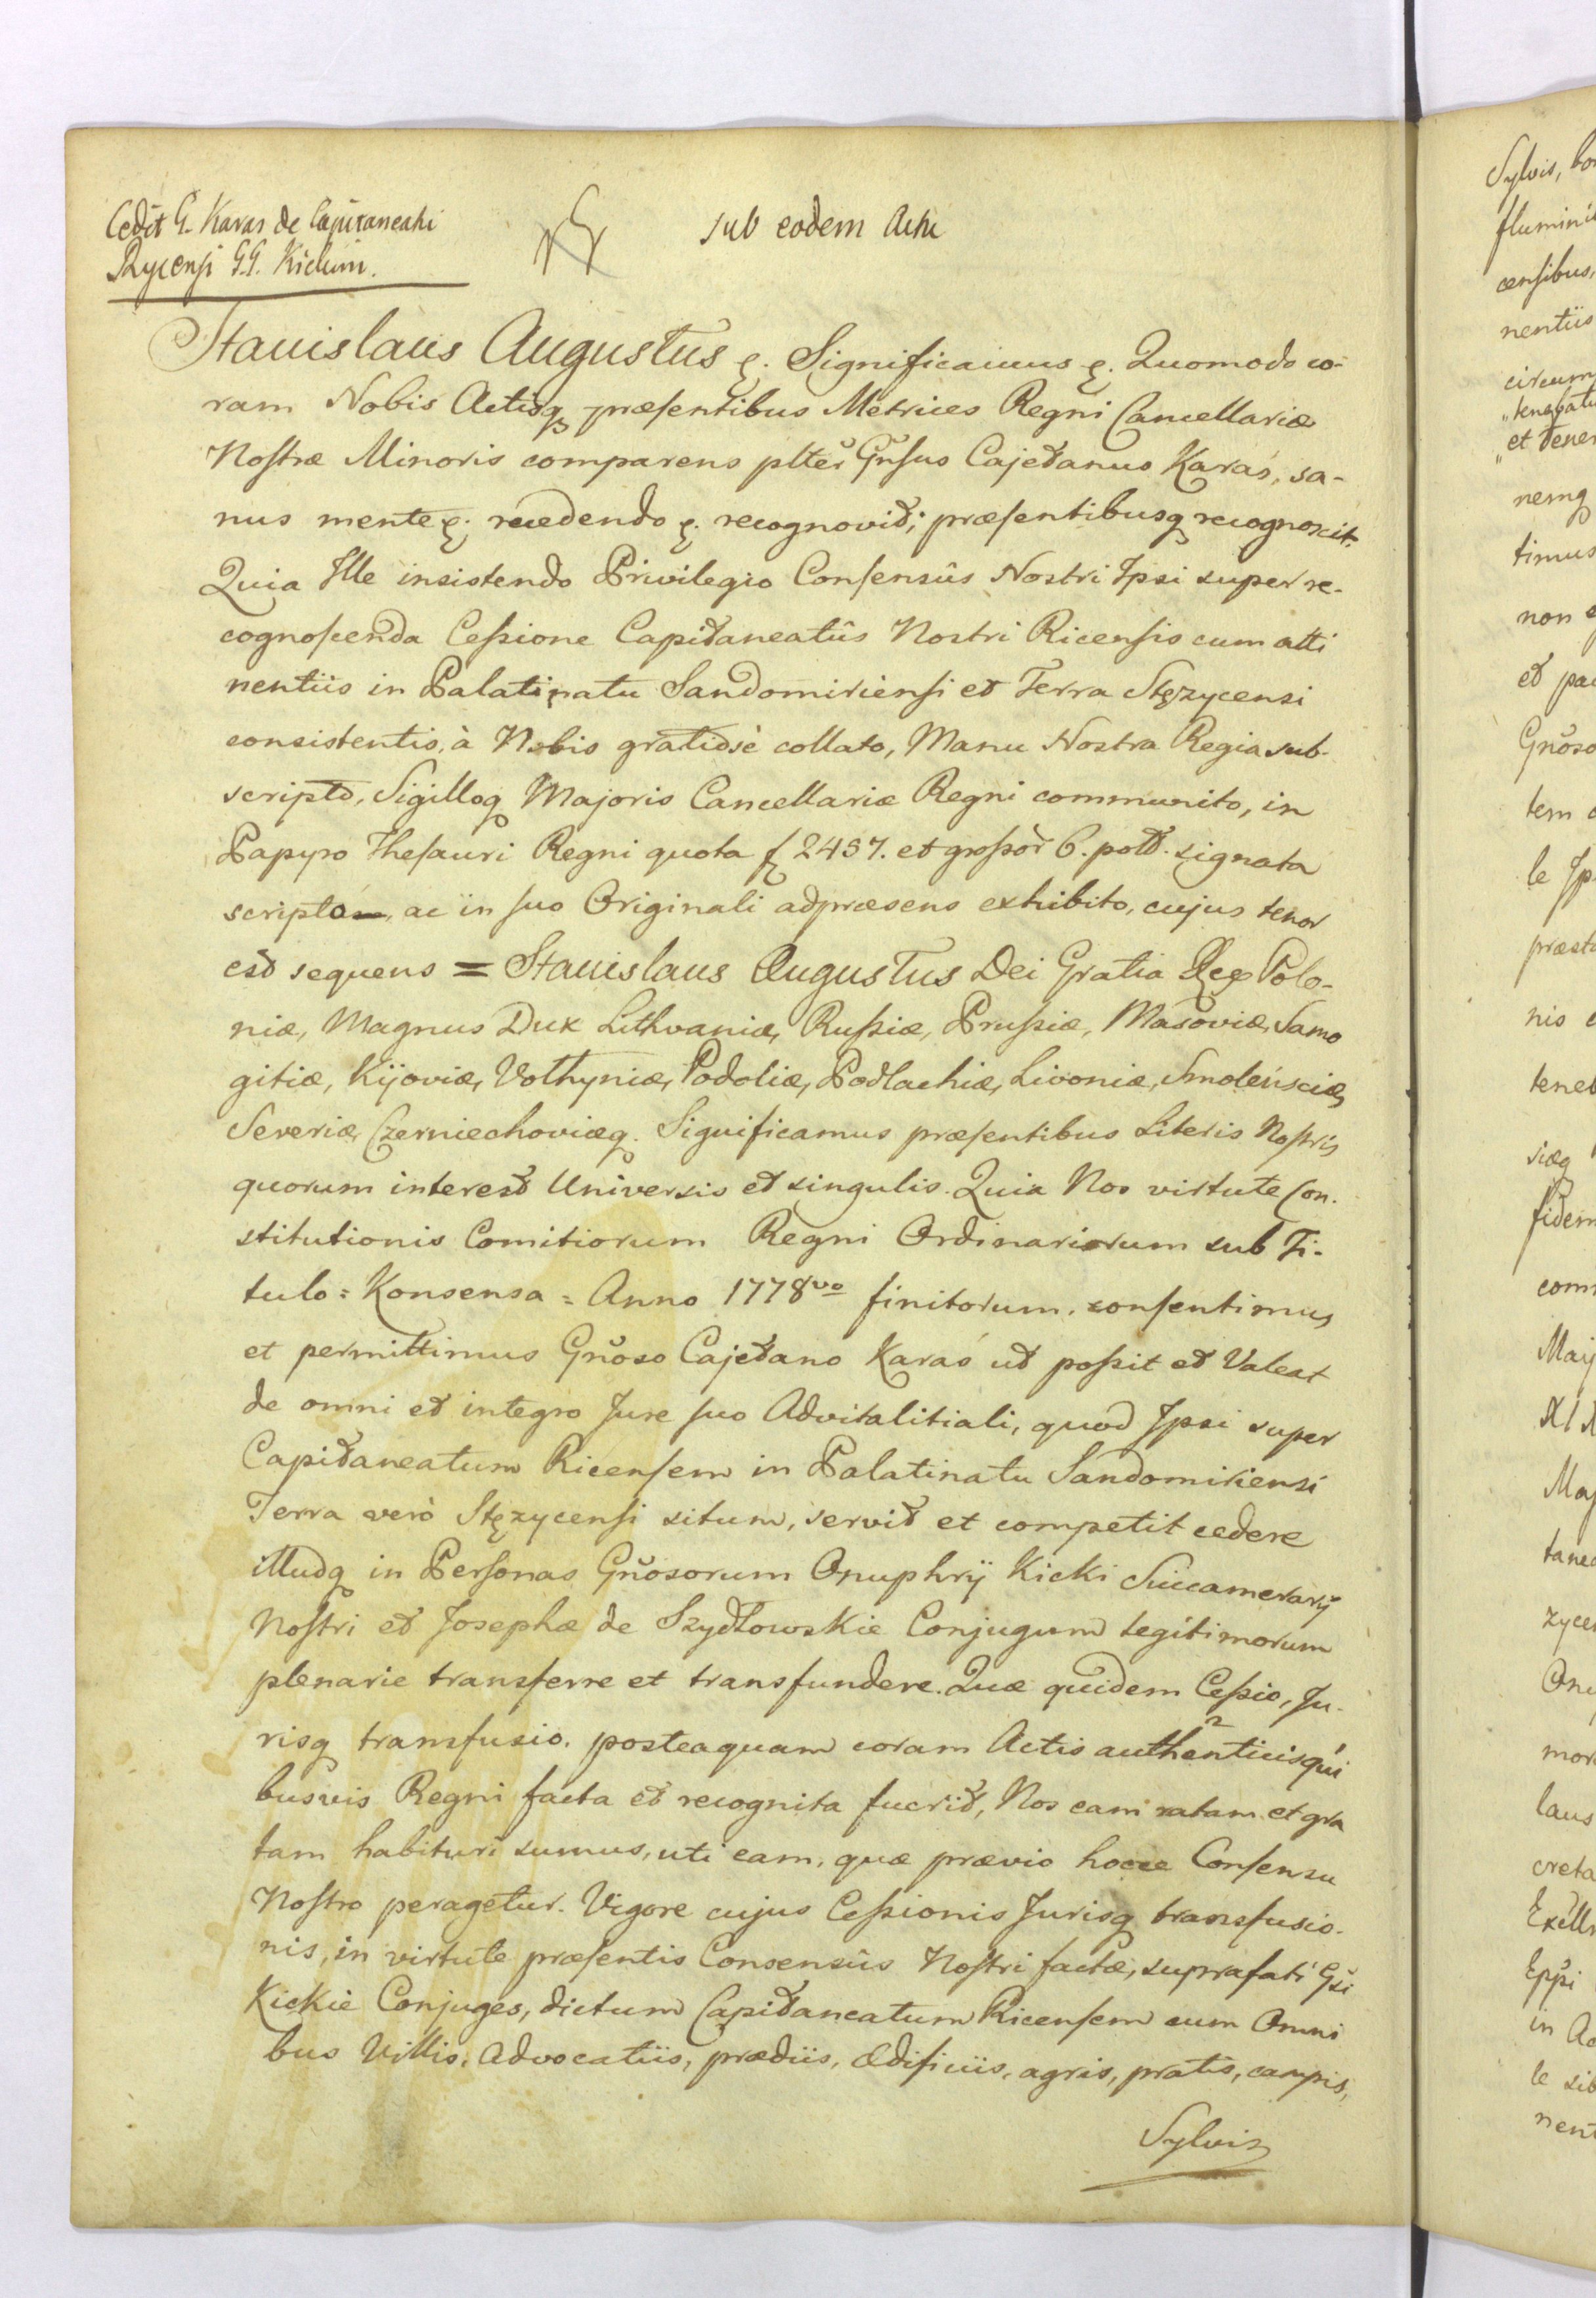 Cedit G. Karas de Capitaneatu
Rycensi G.G. Kickim.
sub eodem Actu
Stanislaus Augustus &. Significamus &. Quomodo co-
ram Nobis Actisq præsentibus Metrices Regni Cancellariæ
Nostræ Minoris comparens plter Gnsus Cajetanus Karaś, sa-
nus mente &. recedendo &. recognovit; præsentibusq recognoscit.
Quia Ille insistendo Privilegio Consensûs Nostri Ipsi super re-
cognoscenda Cessione Capitaneatûs Nostri Ricensis cum atti
nentiis in Palatinatu Sandomiriensi et Terra Stęzycensi
consistentis, à Nobis gratiosè collato, Manu Nostra Regia sub-
scripto, Sigilloq Majoris Cancellariæ Regni communito, in
Papyro Thesauri Regni quota f 2457. et grossor 6. poll. signata
scripto, ac in suo Originali adpræsens exhibito, cujus tenor
est sequens = Stanislaus Augustus Dei Gratia Rex Polo-
niæ, Magnus Dux Lithvaniæ, Russiæ, Prussiæ, Masoviæ, Samo
gitiæ, Kijoviæ, Volhyniæ, Podoliæ, Podlachiæ, Livoniæ, Smoleńsciæ,
Severiæ, Czerniechoviæq. Significamus præsentibus Literis Nostris
quorum interest Universis et singulis. Quia Nos virtute Con-
stitutionis Comitiorum Regni Ordinariorum sub Ti-
tulo = Konsensa = Anno 1778vo finitorum, consentimus
et permittimus Gnoso Cajetano Karaś ut possit et Valeat
de omni et integro Jure suo Advitalitiali, quod Ipsi super
Capitaneatum Ricensem in Palatinatu Sandomiriensi
Terra verò Stęzycensi situm, servit et competit cedere
illudq in Personas Gnosorum Onuphrij Kicki Succamerarij
Nostri et Josephæ de Szydłowskie Conjugum legitimorum
plenarie transferre et transfundere. Quæ quidem Cessio, Ju-
risq transfusio, posteaquam coram Actis authenticis qui
busvis Regni facta et recognita fuerit, Nos eam ratam et gra
tam habituri sumus, uti eam, quæ prævio hocce Consensu
Nostro peragetur. Vigore cujus Cessionis Jurisq transfusio-
nis, in virtute præsentis Consensûs Nostri factæ, suprafati Gsi
Kickie Conjuges, dictum Capitaneatum Ricensem cum Omni
bus Villis, Advocatiis, prædiis, Ædificiis, agris, pratis, campis,
Sylvis